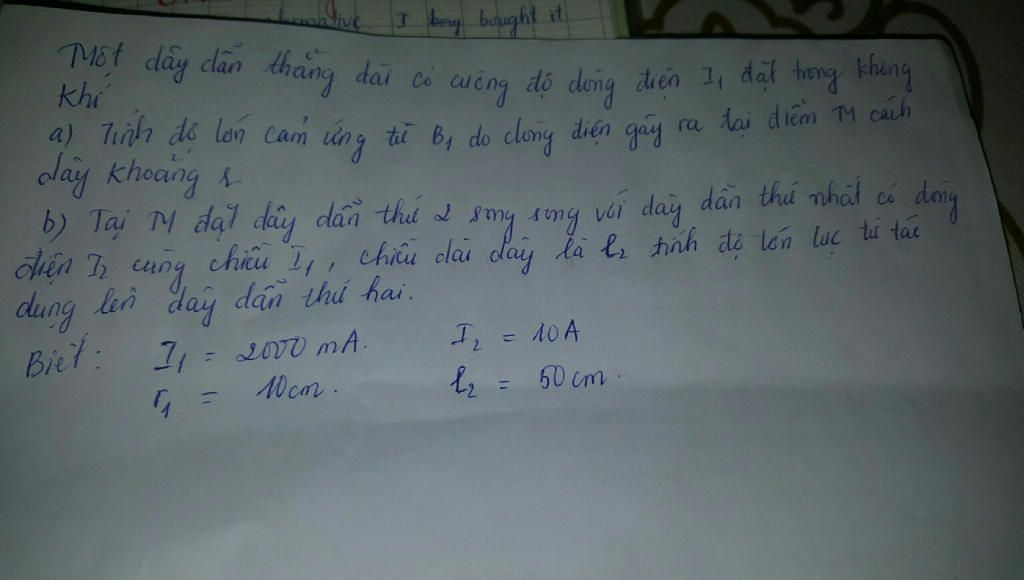 I bought it
Một dây dẫn thẳng dài có cường độ dòng điện I₁ đặt trong không
khí
a) Tính độ lớn cảm ứng từ B₁ do dòng điện gây ra tại điểm M cách
dây khoảng r
b) Tại M đặt dây dẫn thứ 2 song song với dây dẫn thứ nhất có dòng
điện I₂ cùng chiều I₁, chiều dài dây là l₂ tính độ lớn lực từ tác
dụng lên dây dẫn thứ hai.
Biết: I₁ = 2000 mA. I₂ = 10A
r₁ = 10cm. l₂ = 50cm.